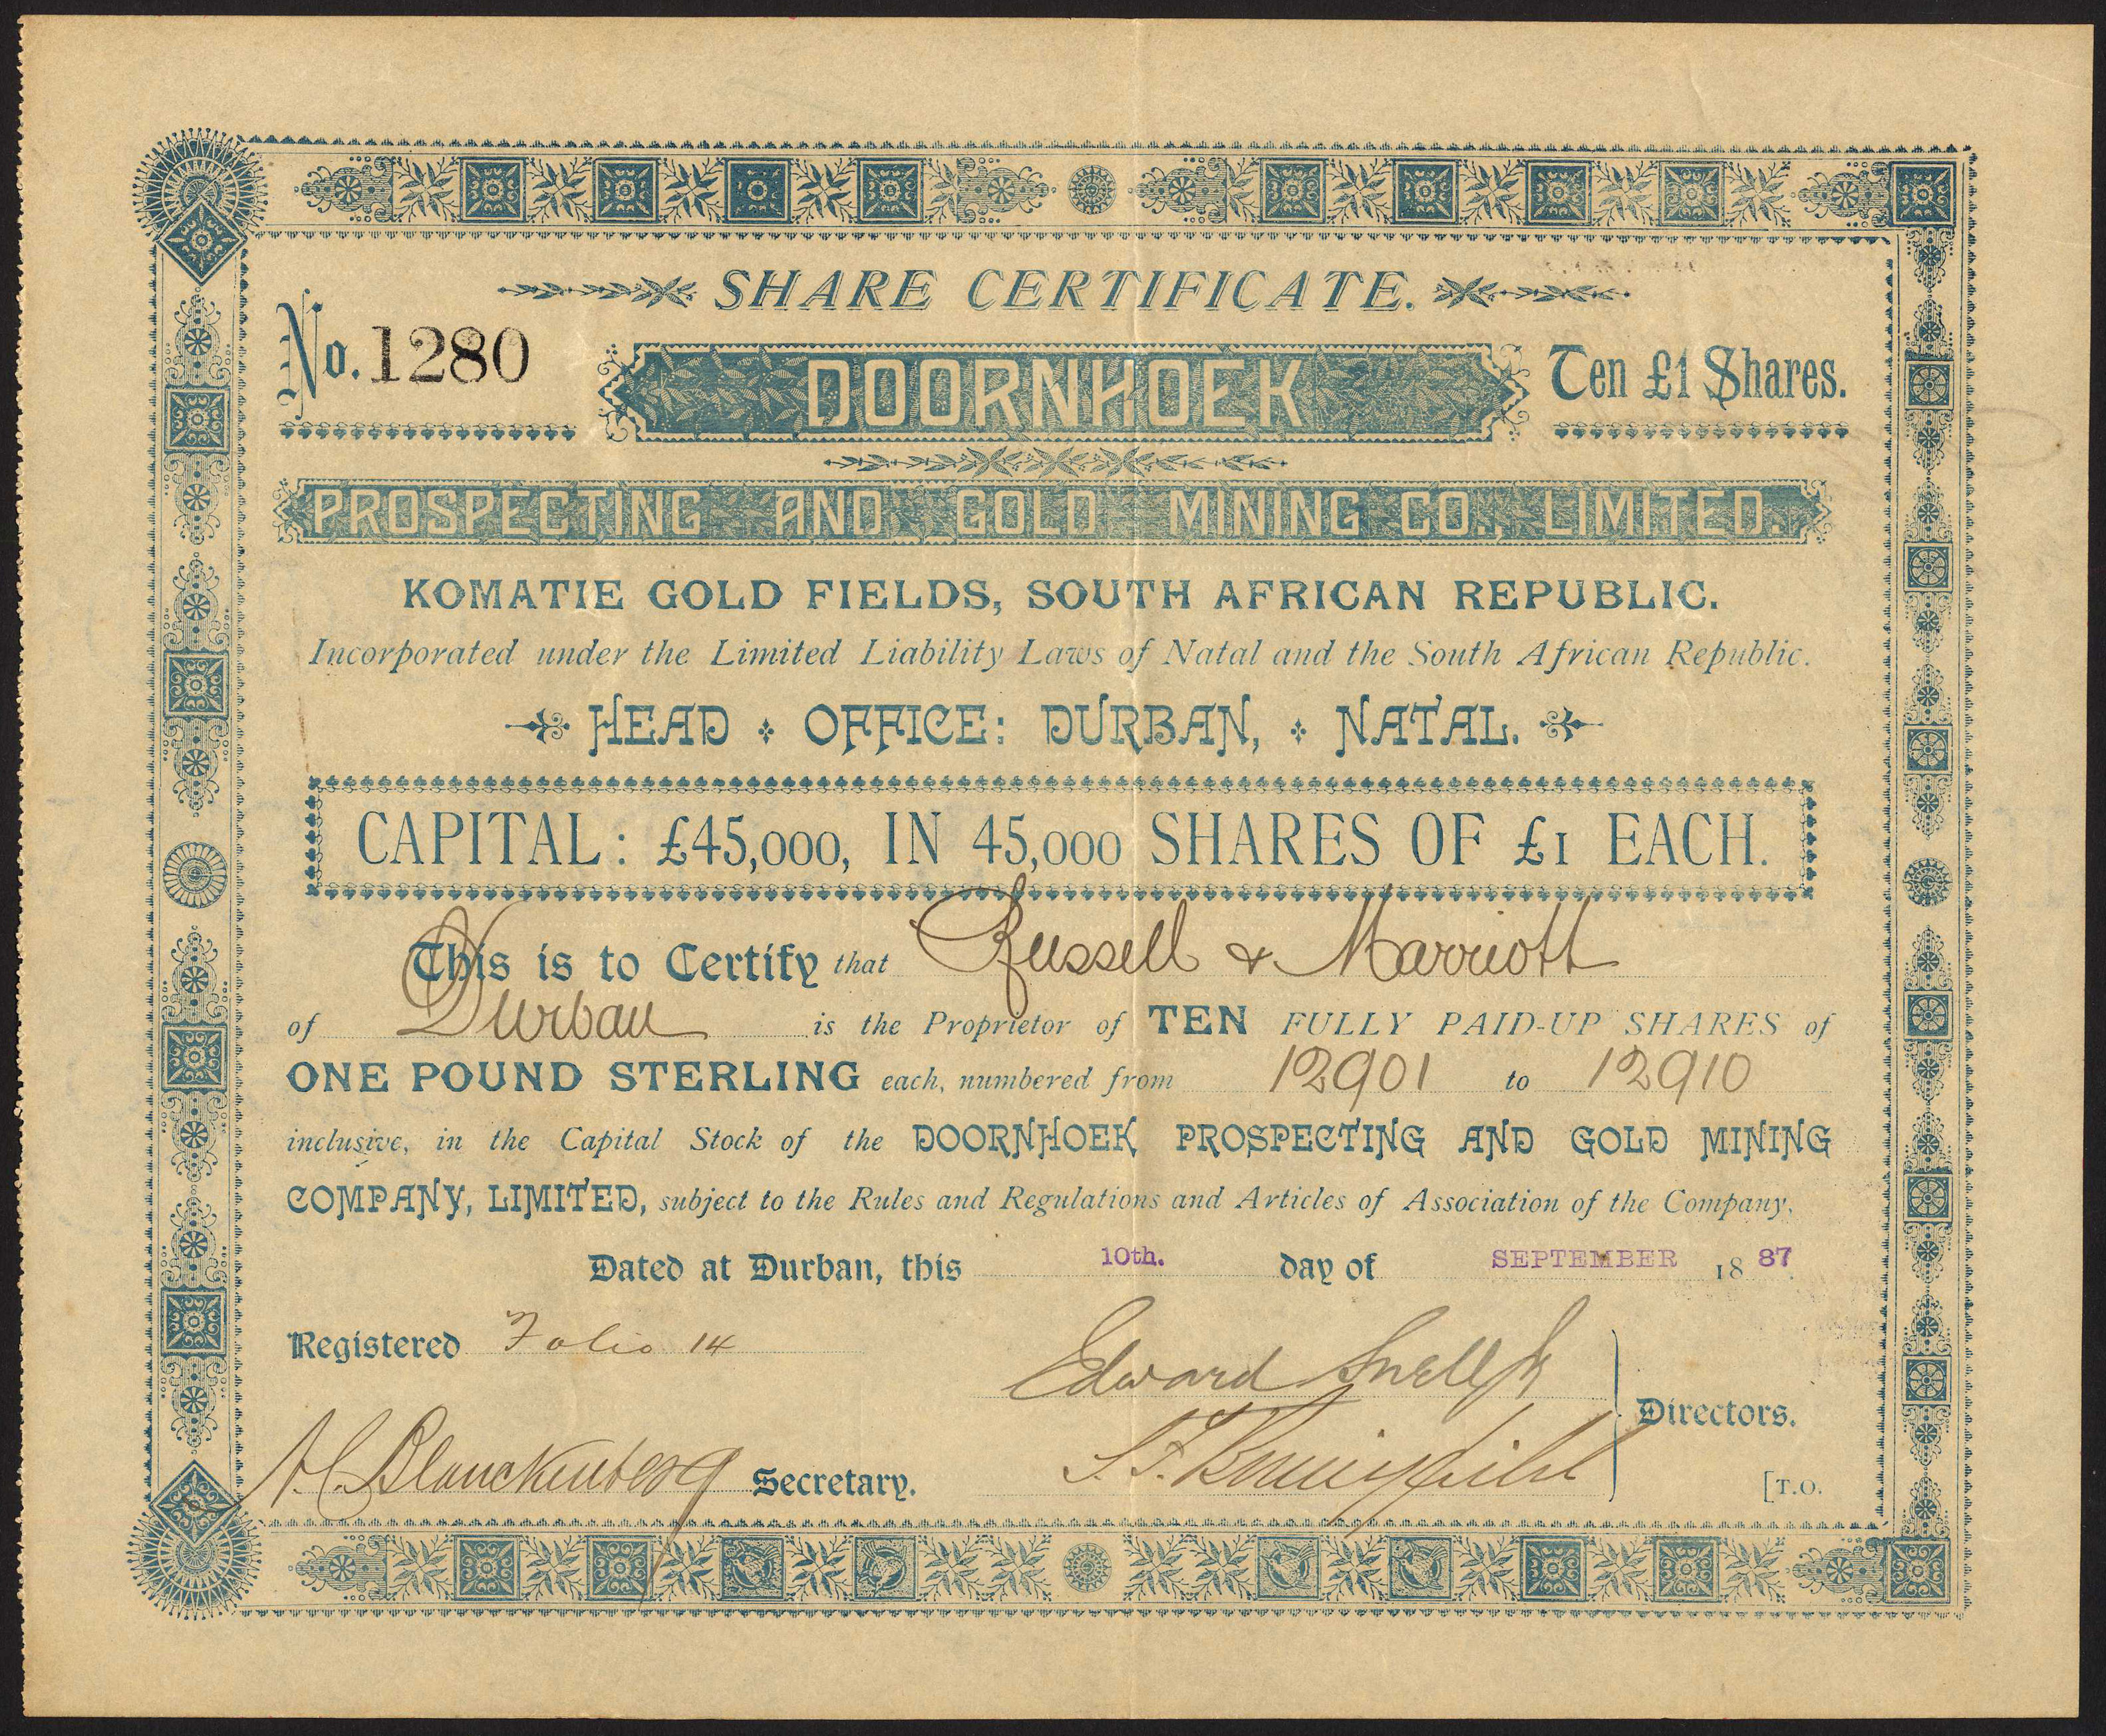 SHARE CERTIFICATE.
No. 1280
DOORNHOEK
Ten £1 Shares.
PROSPECTING AND GOLD MINING CO., LIMITED.
KOMATIE GOLD FIELDS, SOUTH AFRICAN REPUBLIC.
Incorporated under the Limited Liability Laws of Natal and the South African Republic.
HEAD OFFICE: DURBAN, NATAL.
CAPITAL: £45,000, IN 45,000 SHARES OF £1 EACH.
This is to Certify that Russell & Marriott
of Durban is the Proprietor of TEN FULLY PAID-UP SHARES of
ONE POUND STERLING each, numbered from 12901 to 12910
inclusive, in the Capital Stock of the DOORNHOEK PROSPECTING AND GOLD MINING
COMPANY, LIMITED, subject to the Rules and Regulations and Articles of Association of the Company.
Dated at Durban, this 10th. day of SEPTEMBER 1887
Registered Folio 14
Edward Snell Jr
Directors.
A.C. Blanckenberg Secretary.
[T.O.